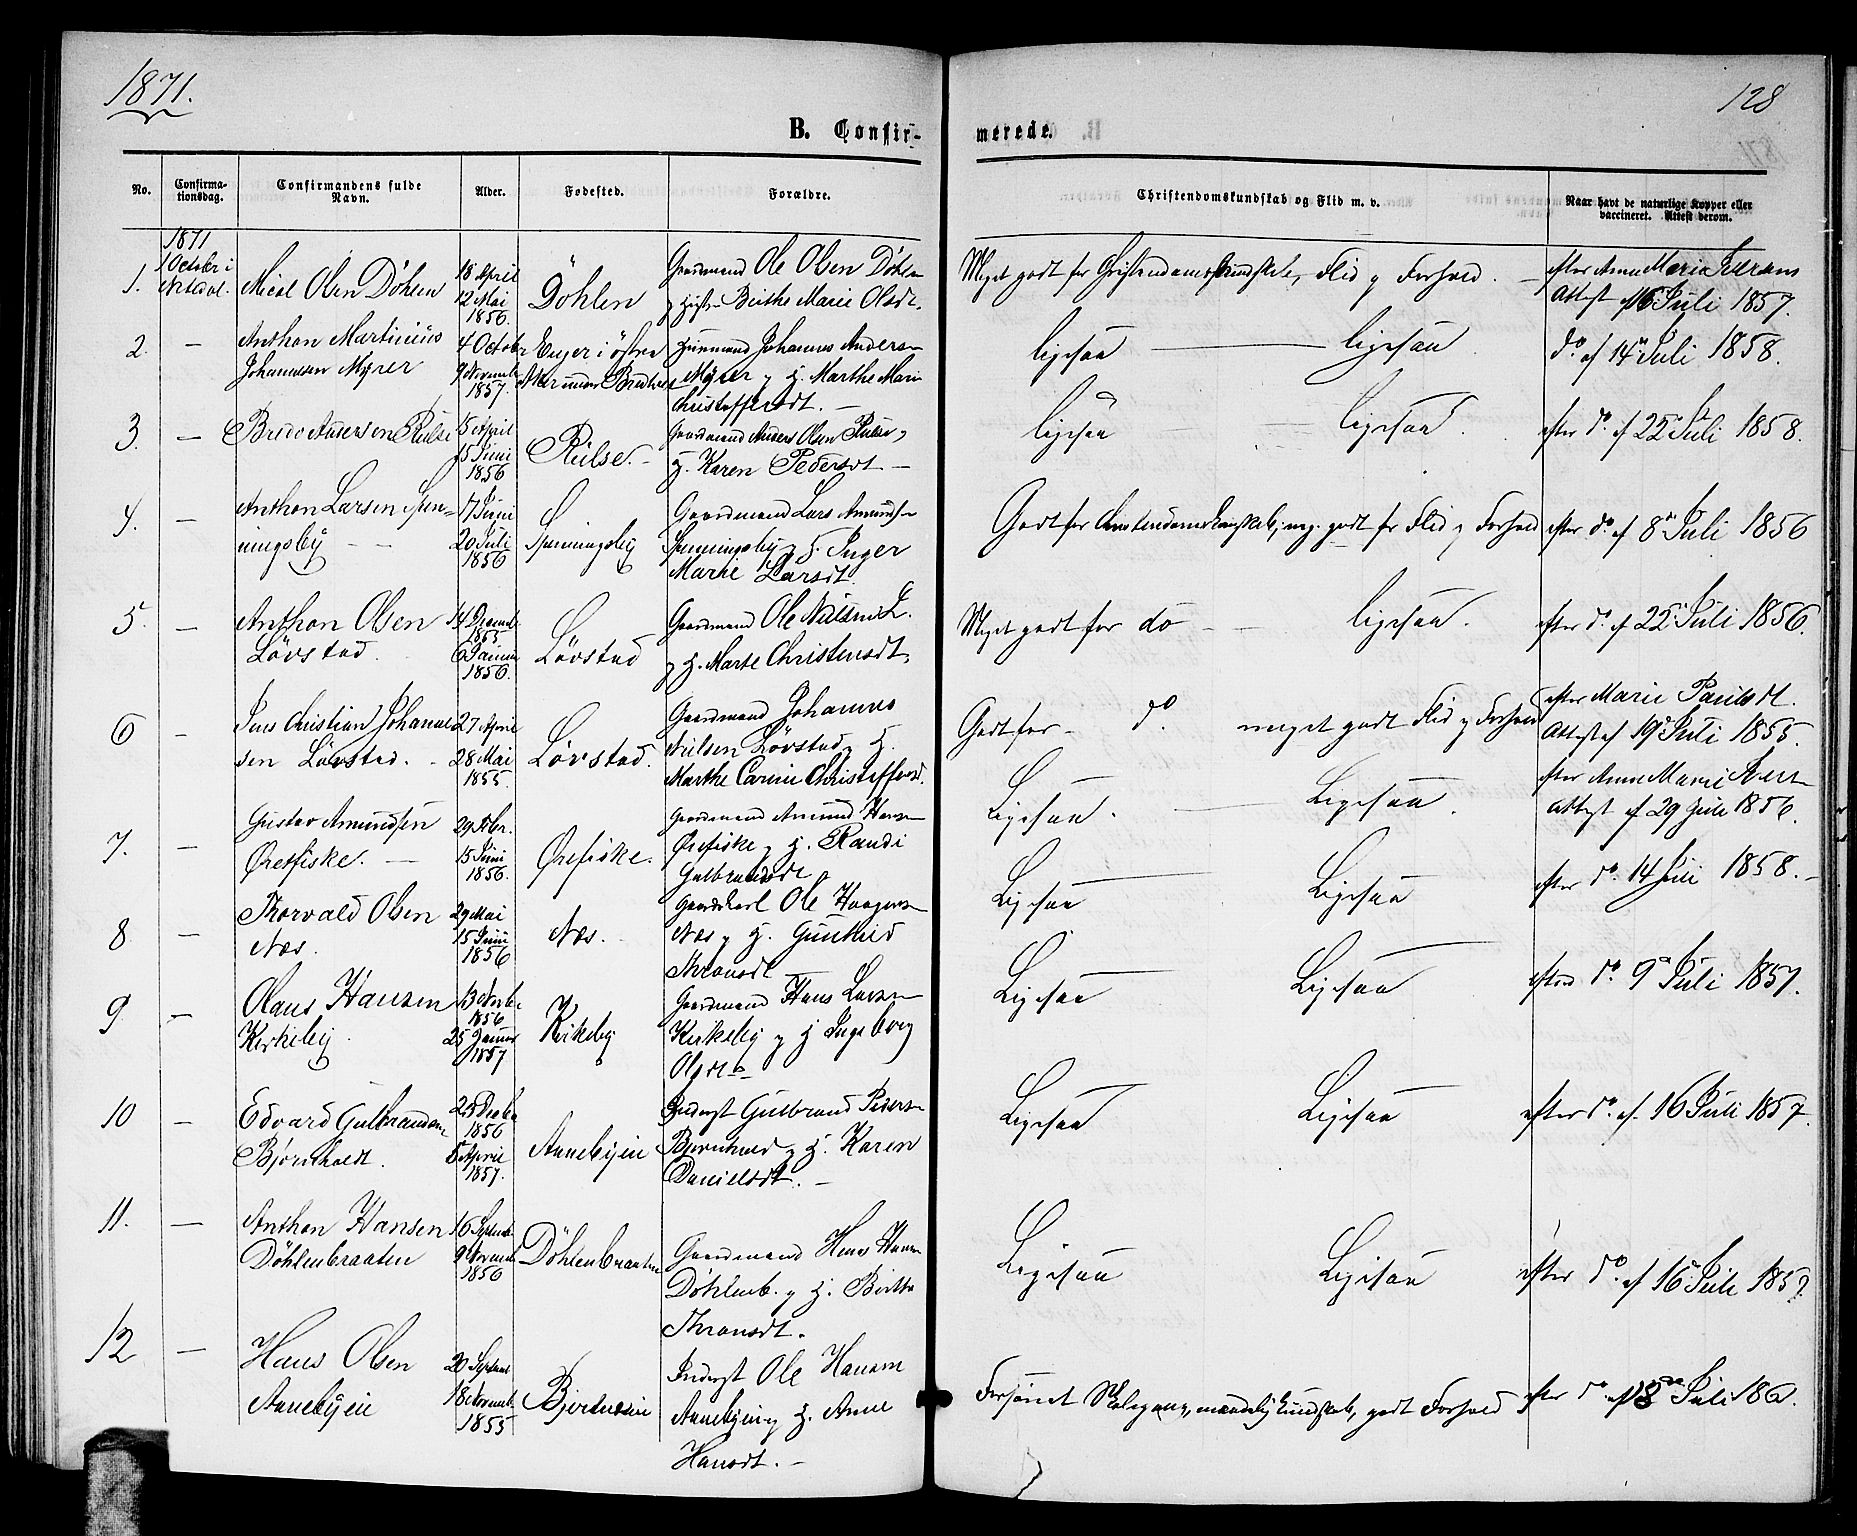 1871.
128
B. Confirmerede.
No.
Confirmationsdag.
Confirmandens fulde Navn.
Alder.
Fødested.
Forældre.
Christendomskundskab og Flid m. v.
Naar havt de naturlige Kopper eller vaccineret. Attest derom.
1871
1 October i
1. Olsen Döhlen 18 April 12 Mai 1856. Döhlen Gaardmand Ole Olsen Döhlen
og Berthe Marie Olsdt. Meget godt for Christendomskundskab, Flid og Forhold. efter Anne Marie
Attest af 16 Juli 1857.
2. — Anthon Martinius
Johannesen Myrer 4 October 9 Novemb. 1857. Enger i östre
Aker Johannes Andersen
Myrer og H. Marthe Marie
Christoffersdt. — ligesaa ligesaa do af 14 Juli 1858.
3. — Brede Andersen Rulse 5 April 15 Juni 1856 Rulse. Gaardmand Anders Olsen Rulse og
H. Karen Pedersdt — ligesaa ligesaa. efter do af 22 Juli 1858.
4. — Anthon Larsen Spen-
ningsby 17 Juni 20 Juli 1856 Spenningsby Gaardmand Lars Amundsen
Spenningsby og H. Inger
Marie Larsdt. Godt for Christendomskundskab, meg. godt for Flid og Forhold efter do af 8 Juli 1856
5. — Anthon Olsen
Lövstad. 14 Decemb. 1855 6 Januar 1856. Lövstad Gaardmand Ole Nilsen L.
og H. Marte Christensdt. Meget godt for do — ligesaa. efter do af 22 Juli 1856.
6 — Jens Christian Johanne-
sen Lövstad. 27 April 28 Mai 1855. Lövstad. Gaardmand Johannes
Nielsen Lövstad og H.
Marthe Carine Christoffersd. Godt for — do. meget godt Flid og Forhold efter Marie Paulsdt.
Attest af 19 Juli 1855.
7. — Gustav Amundsen
Örefiske. — 29 Febr. 15 Juni 1856. Örefiske. Gaardmand Amund Hansen
Örefiske og H. Randi
Gulbrandsdt Ligesaa. Ligesaa. efter Anne Marie
Attest af 29 Juli 1856.
8 — Thorvald Olsen
Næs. 29 Mai 15 Juni 1856 Næs. Ole Haagensen
Næs og H. Gunhild
Thronsdt — Ligesaa Ligesaa efter do. 14 Juli 1858. —
9 — Olaus Hansen
Kirkeby. 13 Novbr. 1856 25 Januar 1857 Kirkeby Gaardmand Hans Larsen
Kirkeby og H Ingeborg
Olsdt Ligesaa Ligesaa efter do 9 Juli 1857.
10 — Edvard Gulbrandsen
Björnholdt. 25 Decbr 1856 5 April 1857. Annebyeie Inderst Gulbrand Pedersen
Björnhold og H. Karen
Danielsdt. — Ligesaa Ligesaa efter do. af 16 Juli 1857.
11. — Anthon Hansen
Döhlenbraaten 16 Septemb. 9 Novemb. 1856 Döhlenbraaten Gaardmand Hans Hansen
Döhlenb. og H. Birthe
Thronsdt. Ligesaa Ligesaa efter do. af 16 Juli 1857.
12 — Hans Olsen
Annebyeie 20 Septemb 18 Novemb. 1855 Inderst Ole Hansen
Annebyeie og H. Anne
Hansdt. — Forsömt Skolegang, maadelig Kundskab, godt Forhold efter do af 18 Juli